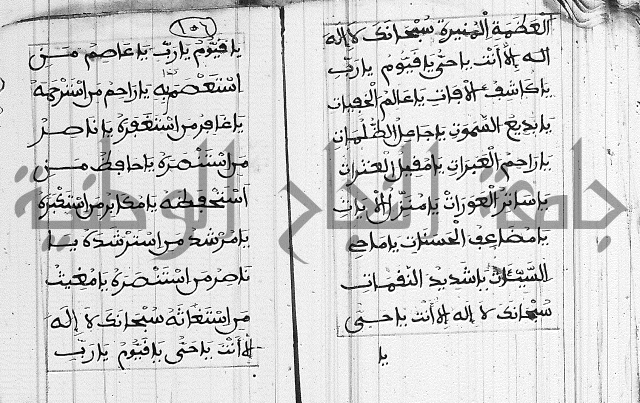 العظمة المنيرة سبحانك لا إله
اله إلا أنت يا حي يا قيوم يا رب
يا كاشف الآفات يا عالم الخفيات
يا بديع السموت يا جاعل الظلمات
يا راحم العبرات يا مقيل العثرات
يا ساتر العورات يا منزل الآيات
يا مضاعف الحسنات يا ماحي
السيئات يا شديد النقمات
سبحانك لا إله إلا أنت يا حي
يا
١٥٦
يا قيوم يا رب يا عاصم من
استعصمه يا راحم من استرحمه
يا غافر من استغفره يا ناصر
من استنصره يا حافظ من
استحفظه يا من
يا مرشد من استرشده يا
ناصر من استنصره يا مغيث
من استغاثه سبحانك لا إله
إلا أنت يا حي يا قيوم يا رب
جامعة النجاح الوطنية